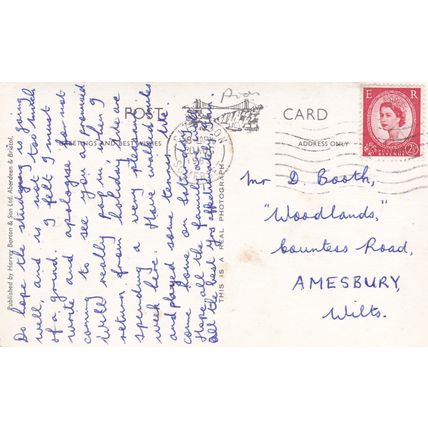 Published by Harvey Barton & Son Ltd. Aberdeen & Bristol.
Do hope the studying is going
well, and is not too much
of a grind. I felt I must
write and apologise for not
coming to see you as promised
Will really pop in when I
return from holiday. We are
spending a very pleasant
week here. Have walked miles
and played some tennis. We
come home on
Hope all the family
all the best. Yrs affectionately,
POST CARD
GREETINGS AND BEST WISHES
ADDRESS ONLY
THIS IS A REAL PHOTOGRAPH
E R
2½
Mr D. Booth,
"Woodlands,"
Countess Road,
AMESBURY,
Wilts.